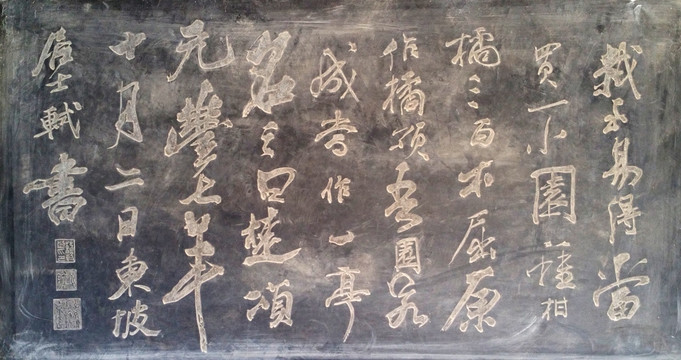 栽至易得當
買一小園種柑
橘三百本屈原
作橘頌吾園若
成當作一亭
名之曰楚頌
元豐七年
十月二日東坡
居士軾書